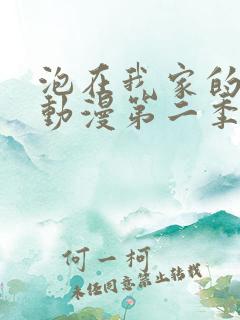 泡在我家的
動漫第二季
何一柯
未经同意禁止转载